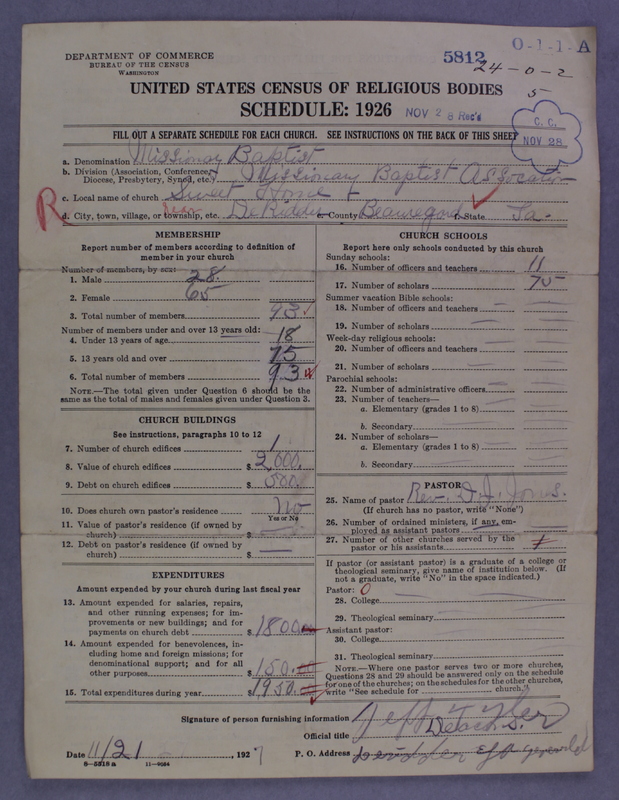 DEPARTMENT OF COMMERCE
BUREAU OF THE CENSUS
WASHINGTON
5812
0-1-1-A
24-0-2
5
UNITED STATES CENSUS OF RELIGIOUS BODIES
SCHEDULE: 1926
NOV 28 Rec'd
C. C.
NOV 28
FILL OUT A SEPARATE SCHEDULE FOR EACH CHURCH. SEE INSTRUCTIONS ON THE BACK OF THIS SHEET
a. Denomination Missionary Baptist
b. Division (Association, Conference, Diocese, Presbytery, Synod, etc.) Missionary Baptist Association
c. Local name of church Sweet Home
R
d. City, town, village, or township, etc. near DeRidder County Beauregard State La-
MEMBERSHIP
Report number of members according to definition of
member in your church
Number of members, by sex:
1. Male 28
2. Female 65
3. Total number of members 93
Number of members under and over 13 years old:
4. Under 13 years of age 18
5. 13 years old and over 75
6. Total number of members 93
NOTE.—The total given under Question 6 should be the
same as the total of males and females given under Question 3.
CHURCH BUILDINGS
See instructions, paragraphs 10 to 12
7. Number of church edifices 1
8. Value of church edifices $ 2,000.
9. Debt on church edifices $ 500.
10. Does church own pastor's residence No
Yes or No
11. Value of pastor's residence (if owned by
church) $
12. Debt on pastor's residence (if owned by
church) $ —
EXPENDITURES
Amount expended by your church during last fiscal year
13. Amount expended for salaries, repairs,
and other running expenses; for im-
provements or new buildings; and for
payments on church debt $ 1800
14. Amount expended for benevolences, in-
cluding home and foreign missions; for
denominational support; and for all
other purposes $ 150.
15. Total expenditures during year $ 1950.
CHURCH SCHOOLS
Report here only schools conducted by this church
Sunday schools:
16. Number of officers and teachers 11
17. Number of scholars 75
Summer vacation Bible schools:
18. Number of officers and teachers
19. Number of scholars
Week-day religious schools:
20. Number of officers and teachers
21. Number of scholars
Parochial schools:
22. Number of administrative officers
23. Number of teachers—
a. Elementary (grades 1 to 8)
b. Secondary
24. Number of scholars—
a. Elementary (grades 1 to 8)
b. Secondary
PASTOR
25. Name of pastor Rev. D. J. Jones.
(If church has no pastor, write "None")
26. Number of ordained ministers, if any, em-
ployed as assistant pastors
27. Number of other churches served by the
pastor or his assistants
If pastor (or assistant pastor) is a graduate of a college or
theological seminary, give name of institution below. (If
not a graduate, write "No" in the space indicated.)
Pastor: 0
28. College
29. Theological seminary
Assistant pastor:
30. College
31. Theological seminary
NOTE.—Where one pastor serves two or more churches,
Questions 28 and 29 should be answered only on the schedule
for one of the churches; on the schedules for the other churches,
write "See schedule for church."
Signature of person furnishing information Jeff Tyler
Official title Deacon
Date 11/21, 1927
P. O. Address
8—5518 a 11—9034